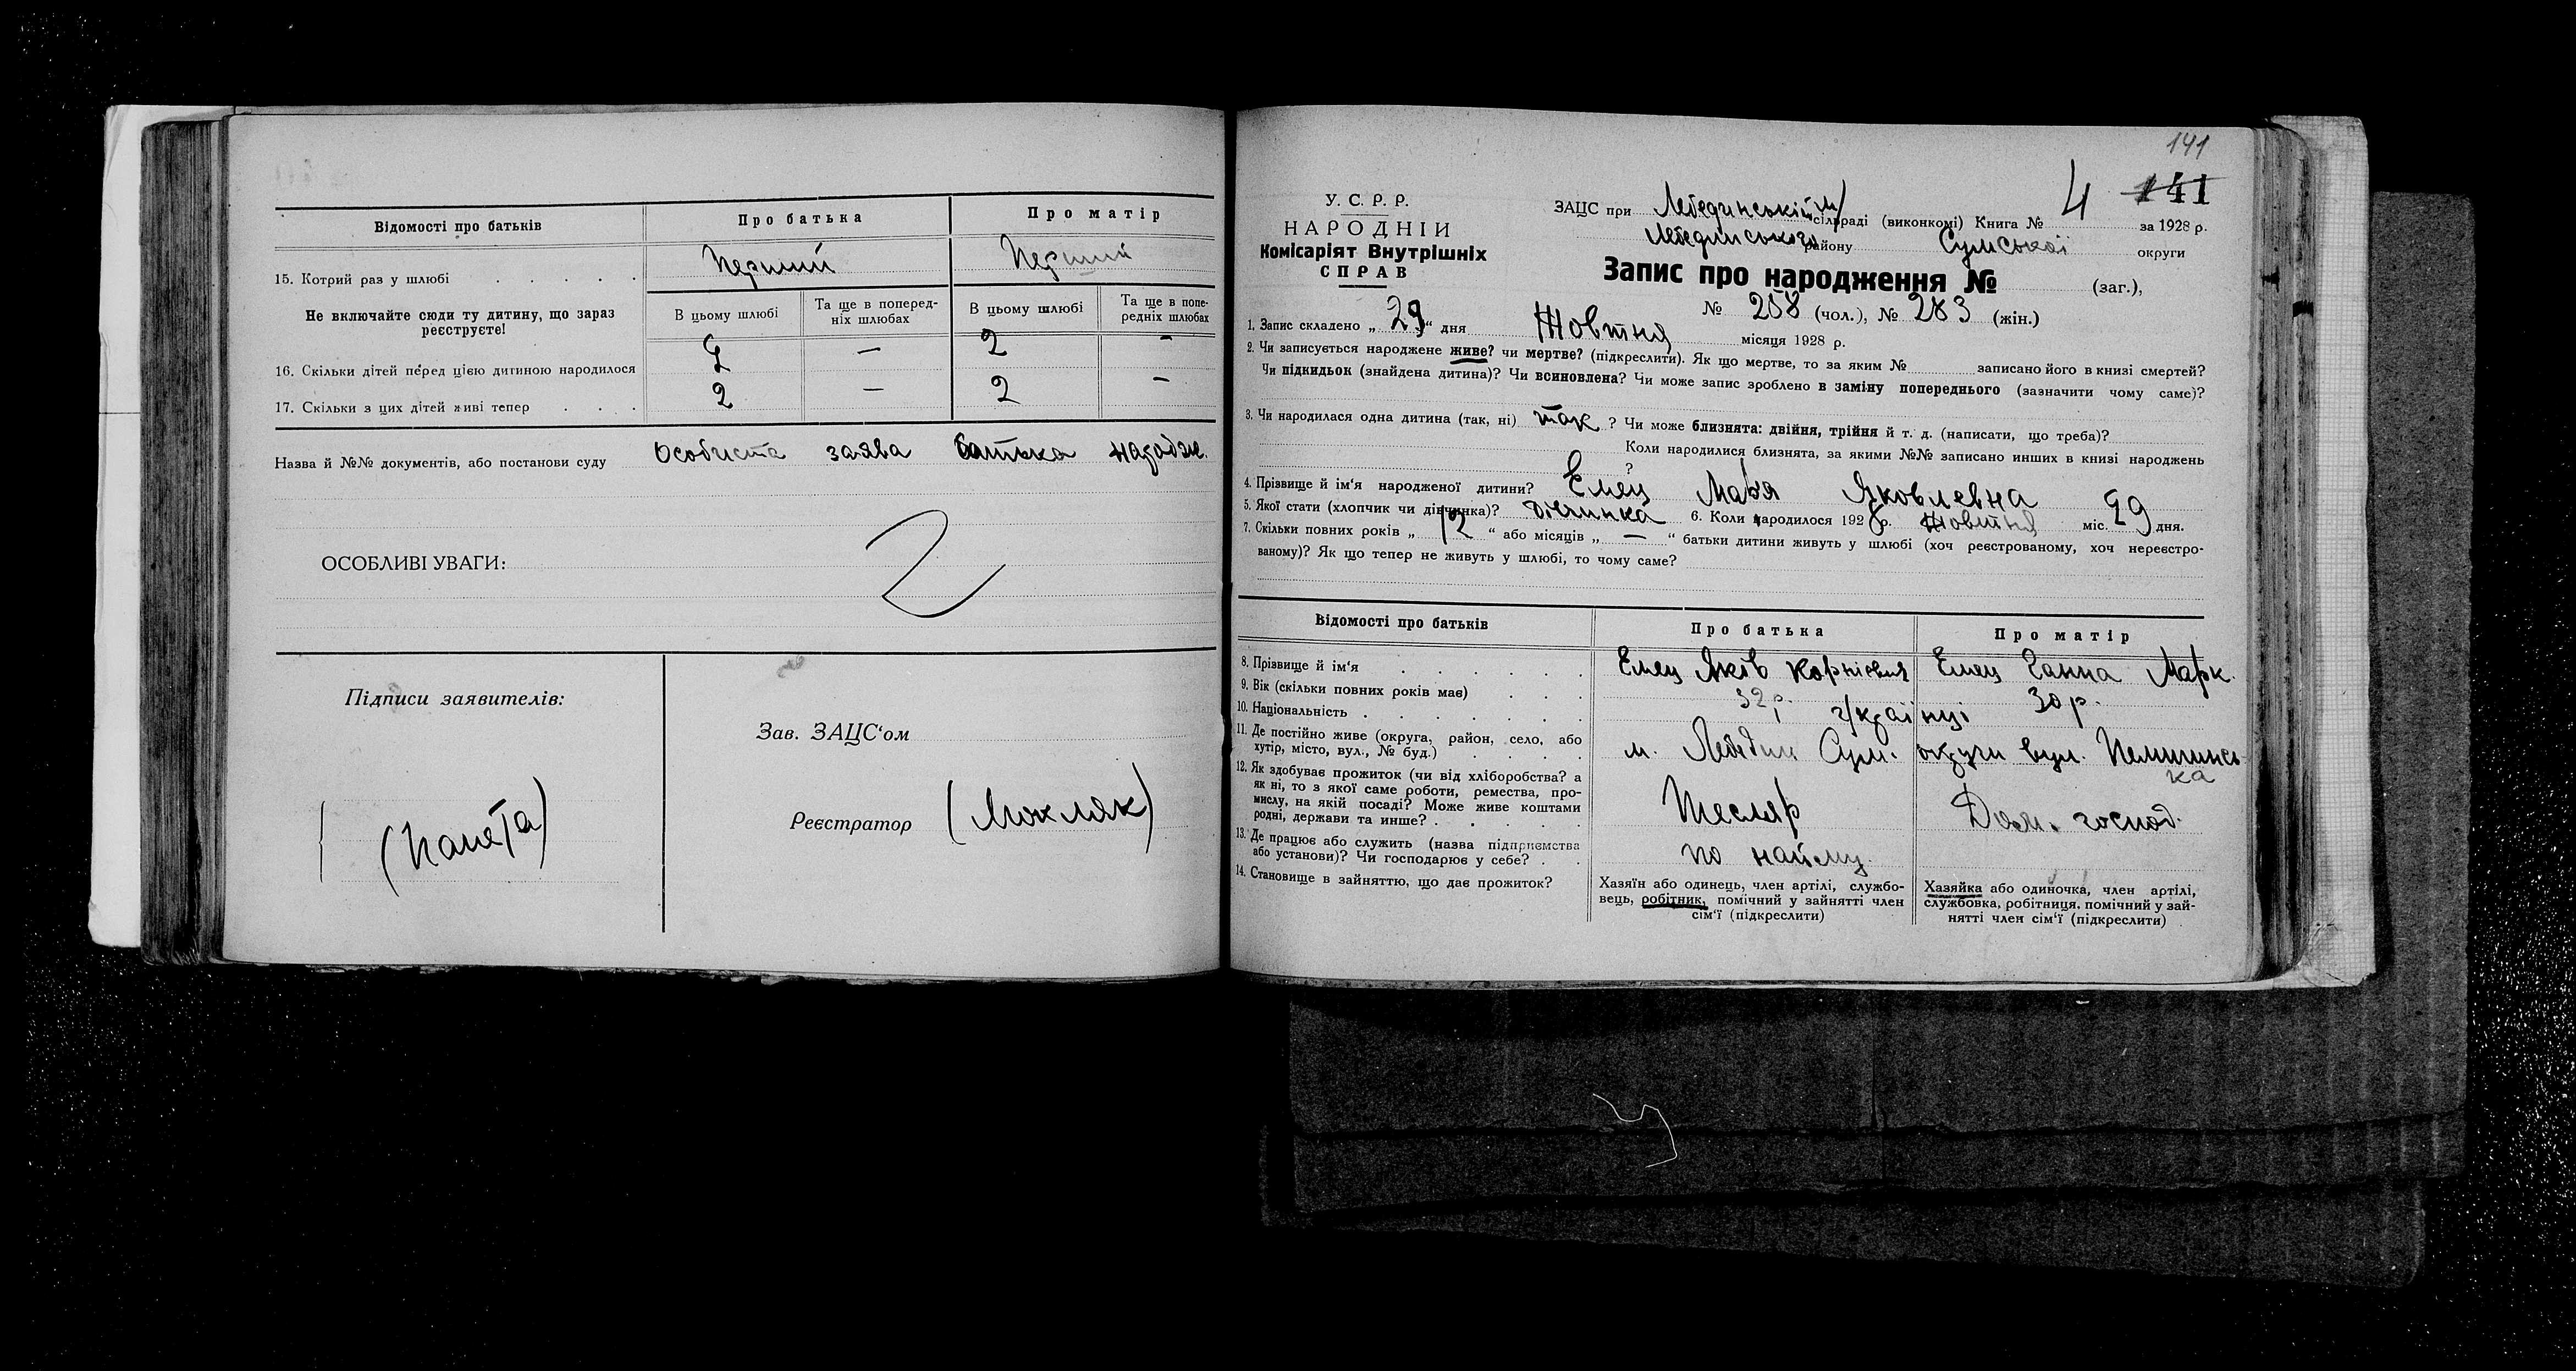 Відомості про батьків
Про батька
Про матір
15. Котрий раз у шлюбі
Перший
Перший
Не включайте сюди ту дитину, що зараз реєструєте!
В цьому шлюбі
Та ще в поперед-
ніх шлюбах
В цьому шлюбі
Та ще в попе-
редніх шлюбах
16. Скільки дітей перед цією дитиною народилося
2
—
2
-
17. Скільки з цих дітей живі тепер
2
—
2
-
Назва й №№ документів, або постанови суду Особиста заява батька народж.
ОСОБЛИВІ УВАГИ:
Підписи заявителів:
Зав. ЗАЦС‘ом
Реєстратор (Мокляк)
141
У. С. Р. Р.
НАРОДНІЙ
Комісаріят Внутрішніх
СПРАВ
ЗАЦС при Лебединській м/сільраді (виконкомі) Книга № 4 141 за 1928 р.
Лебединського району Сумської округи
Запис про народження № (заг.),
№ 258 (чол.), № 283 (жін.)
1. Запис складено „ 29 “ дня Жовтня місяця 1928 р.
2. Чи записується народжене живе? чи мертве? (підкреслити). Як що мертве, то за яким № записано його в книзі смертей?
Чи підкидьок (знайдена дитина)? Чи всиновлена? Чи може запис зроблено в заміну попереднього (зазначити чому саме)?
3. Чи народилася одна дитина (так, ні) так ? Чи може близнята: двійня, трійня й т. д. (написати, що треба)?
Коли народилися близнята, за якими №№ записано инших в книзі народжень
?
4. Прізвище й ім‘я народженої дитини? Емец Яковлевна
5. Якої стати (хлопчик чи дівчинка)? дівчинка 6. Коли народилося 1928 р. Жовтня міс. 29 дня.
7. Скільки повних років „ 12 “ або місяців „ — “ батьки дитини живуть у шлюбі (хоч реєстрованому, хоч нереєстро-
ваному)? Як що тепер не живуть у шлюбі, то чому саме?
Відомості про батьків
Про батька
Про матір
8. Прізвище й ім‘я
Емец Яків Корнієвич
Емец Ганна Марк.
9. Вік (скільки повних років має)
32 р.
30 р.
10. Національність
Українці
11. Де постійно живе (округа, район, село, або
хутір, місто, вул., № буд.)
м. Лебедин Сум. округи вул.
12. Як здобуває прожиток (чи від хліборобства? а
як ні, то з якої саме роботи, ремества, про-
мислу, на якій посаді? Може живе коштами
родні, держави та инше?
Тесляр
Дом. господ.
13. Де працює або служить (назва підприємства
або установи)? Чи господарює у себе?
по найму.
14. Становище в зайняттю, що дає прожиток?
Хазяїн або одинець, член артілі, службо-
вець, робітник, помічний у зайнятті член
сім‘ї (підкреслити)
Хазяйка або одиночка, член артілі,
службовка, робітниця, помічний у зай-
нятті член сім‘ї (підкреслити)